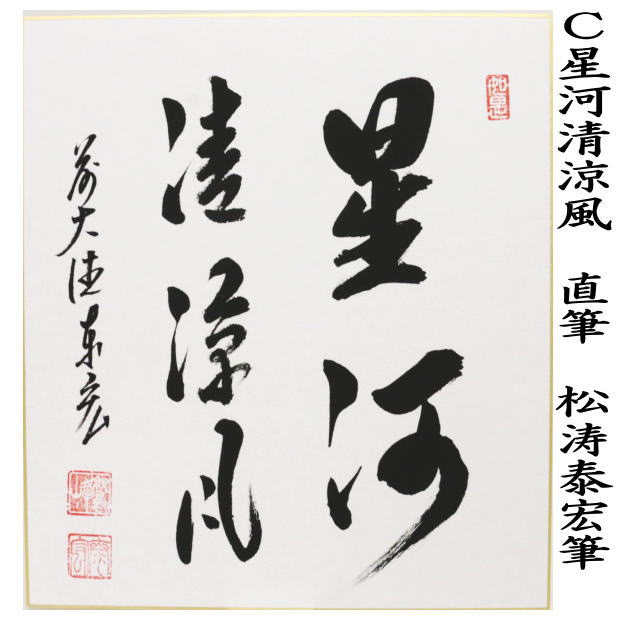 C星河清涼風 直筆 松涛泰宏筆
星河
清涼风
前大徳泰宏
如意